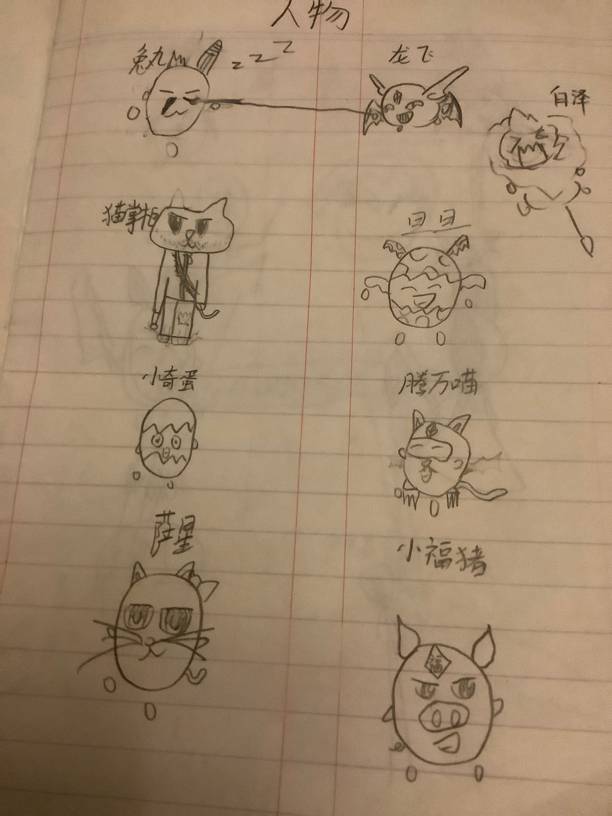 人物
兔丸
zzz
龙飞
白泽
猫掌柜
旦旦
小奇蛋
腾万喵
萨星
小福猪
福